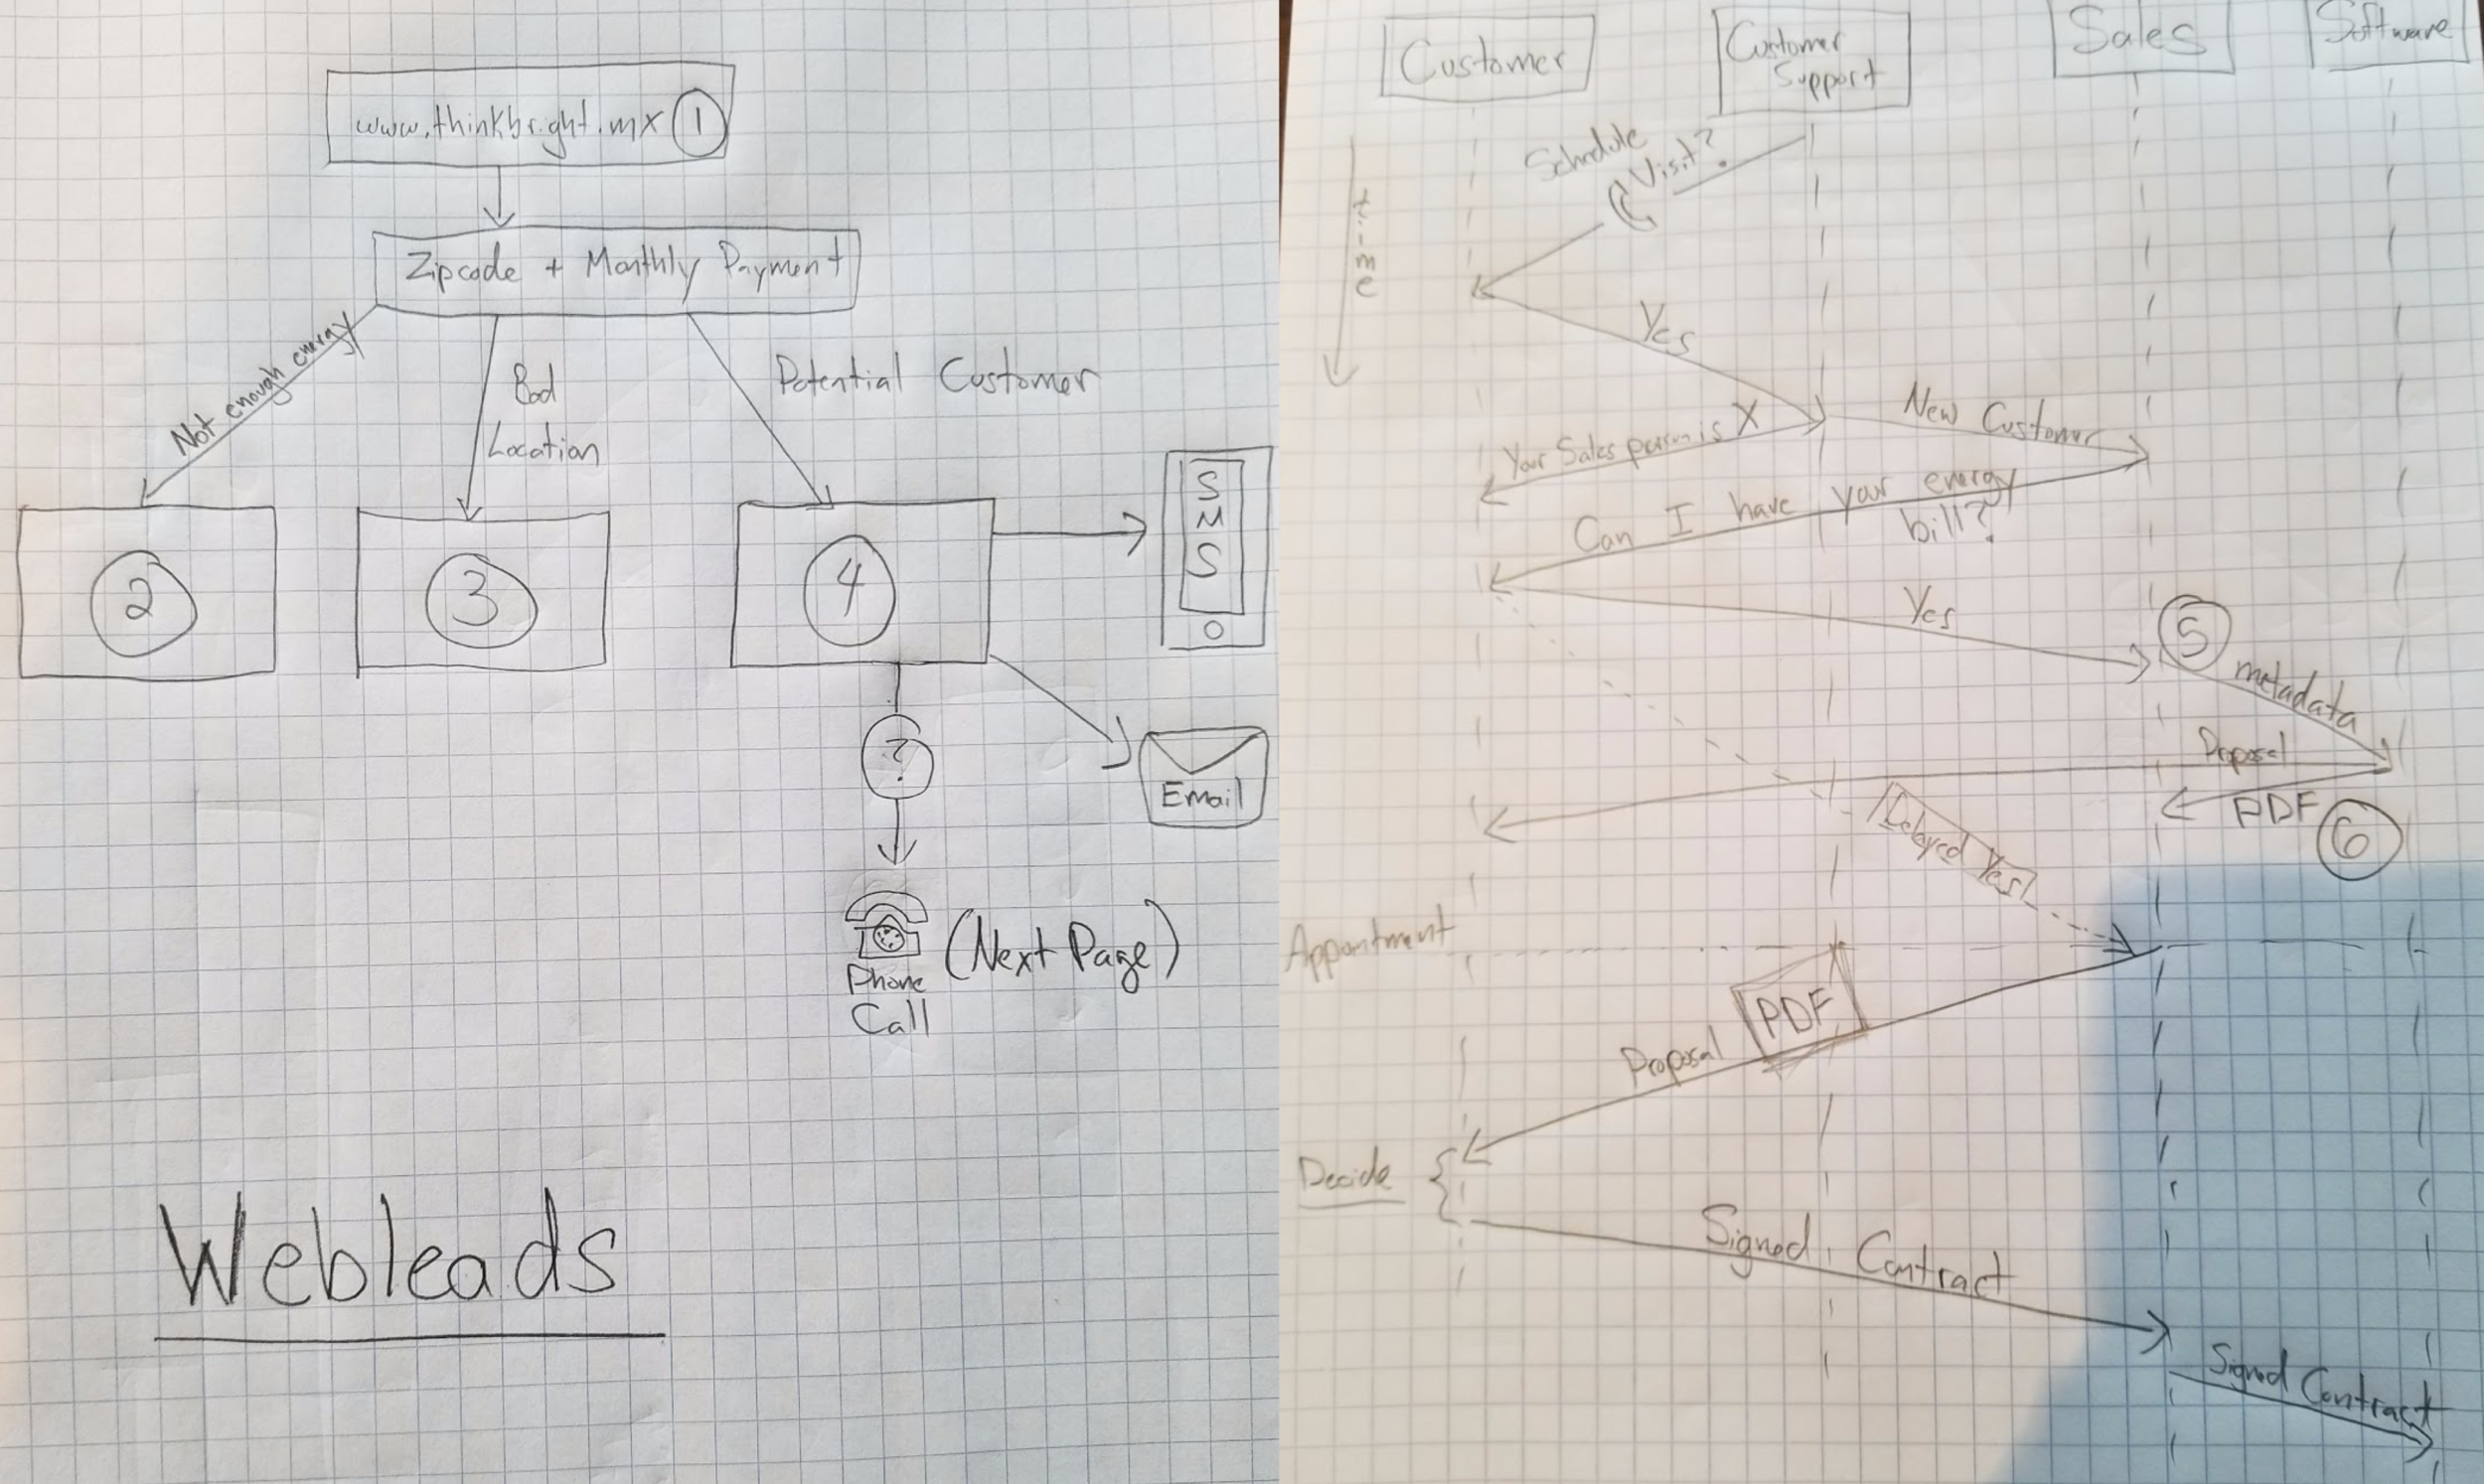 www.thinkbright.mx 1
Zipcode + Monthly Payment
Not enough energy
Bad
Location
Potential Customer
2
3
4
S
M
S
?
Email
Phone
Call
(Next Page)
Webleads
Customer
Customer
Support
Sales
Software
time
Schedule
Visit?
Yes
New Customer
Your Sales person is X
Can I have your energy
bill?
Yes
5
metadata
Proposal
PDF
6
Delayed Yes
Appointment
PDF
Proposal
Decide
Signed Contract
Signed Contract